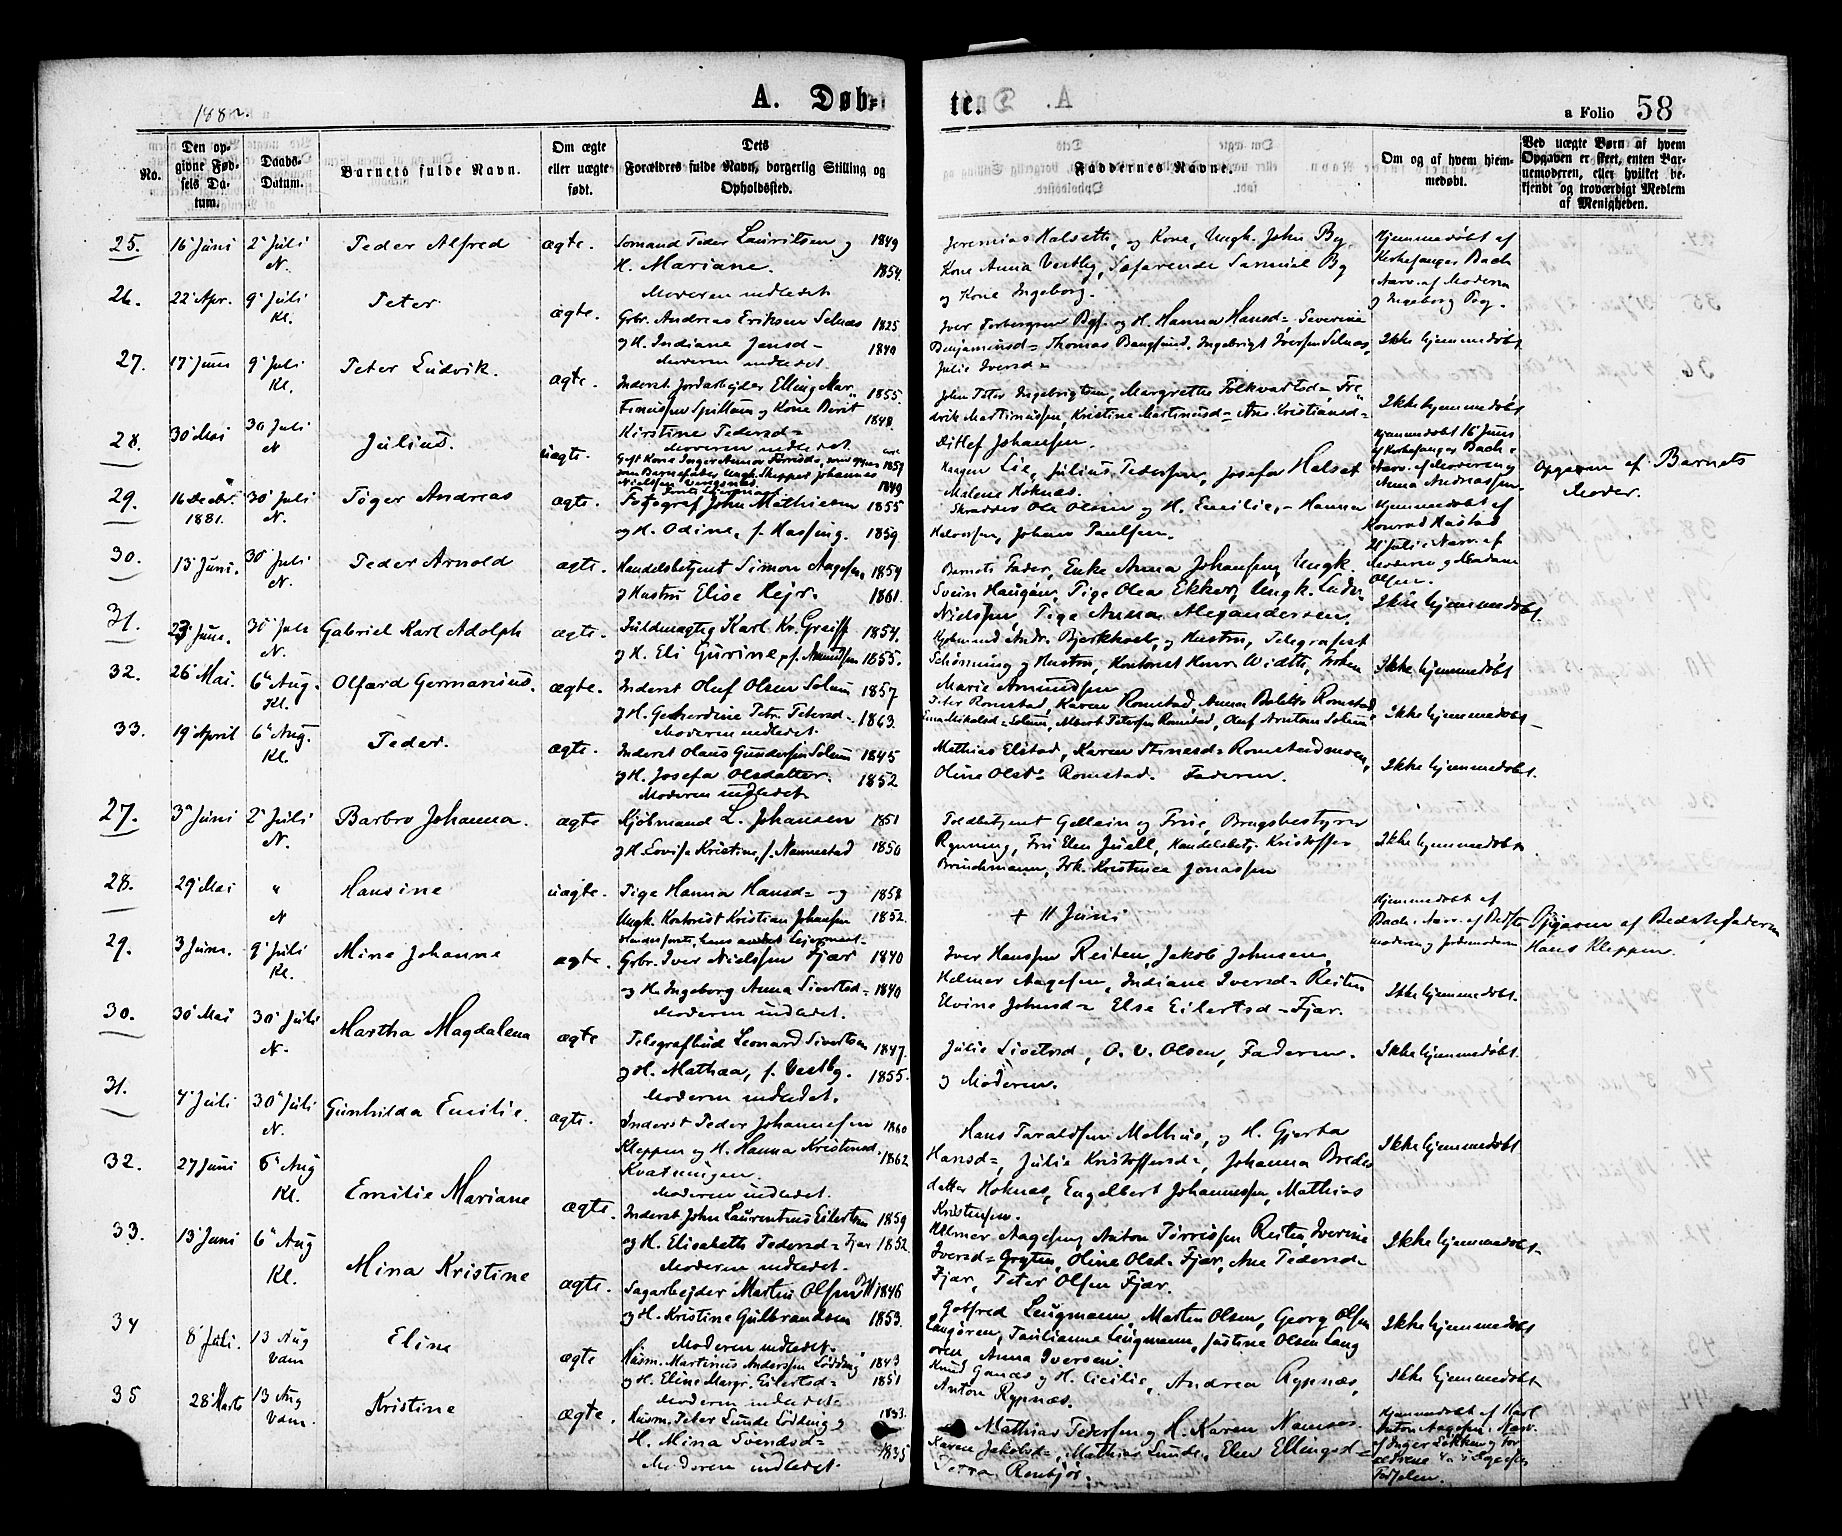 1882.
A. Døb-
te.
a Folio 58
No.
Den op-
givne Fød-
sels Da-
tum.
Daabs-
Datum.
Barnets fulde Navn.
Om ægte
eller uægte
født.
Dets
Forældres fulde Navn, borgerlig Stilling og
Opholdssted.
Faddernes Navne.
Om og af hvem hjem-
medøbt.
Ved uægte Børn af hvem
Opgaven er skeet, enten Bar-
nemoderen, eller hvilket be-
kjendt og troværdigt Medlem
af Menigheden.
25. 16 Juni 2 Juli N. Peder Alfred ægte.
Sømand Peder Lauritsen og 1849
H. Mariane. 1854.
Moderen indledet
Jeremias Halseth, og Kone, Ungk. John By,
Kone Anna Vestby, Søfarende Samuel By
og Kone Ingeborg.
Hjemmedøbt af
Kirkesanger Bach
Nærv. af Moderen
og Ingeborg By.
26. 22 Apr. 9 Juli Kl. Peter ægte.
Gbr. Andreas Eriksen Selnæs 1825
og H. Indiane Jensd= 1840
Moderen indledet
Iver Torbergsen og H. Hanna Hansd= Severine
Benjaminsd= Thomas Bangsund, Ingebrigt Iversen Selnæs,
Julie Iversd=
Ikke hjemmedøbt
27. 17 Juni 9 Juli Kl. Peter Ludvik. ægte.
Inderst. Jordarbejder Elling Mar- 1855.
tinussen Spillum og Kone Berit 1848
Kirstine Pedersd=
Moderen indledet
John Peter Ingebrigtsen, Margrethe Folkvartsd= Fre-
drik Martinussen, Kristine Martinusd= Ane Kristiansd=
Ditlef Johansen.
Ikke hjemmedøbt
28. 30 Mai 30 Juli N Julius. uægte.
1849
Lie, Julius Pedersen, Josefa Halset
Malene Høknæs.
Hjemmedøbt 16 Juni
af Kirkesanger Bach
Nærv. af Moderen og
Anna Andreassen.
Opgaven af Barnets
Moder.
29. 16 Decbr. 1881. 30 Juli N. Tøger Andreas ægte.
Fotograf John Mathiesen 1855
og H. Odine, f. Hassing. 1859.
Skrædder Ole Olsen og H. Emilie, Hanna
Johan Paulsen.
Hjemmedøbt af
Konrad Hustad
21 Juli i Nærv. af
Moderen og Madam
Olsen.
30. 13 Juni. 30 Juli N. Peder Arnold ægte.
Handelsbetjent Simon Aagesen 1854
og Hustru Elise Hejr. 1861.
Barnets Fader, Enke Anna Johansen, Ungk.
Svein Haugan, Pige Olea Ekker, Ungk. Peder
Nielsen, Pige Anna Alexandersen.
Ikke hjemmedøbt.
31. 23 Juni. 30 Juli N. Gabriel Karl Adolph ægte.
Fuldmægtig Karl Kr. Greiff 1854.
og H. Eli Gurine, f. Amundsen 1855.
Kjøbmand Andr. Bjerkhoel og Hustru, Telegrafist
Schønning og Hustru, Kontorist Width, Frøken
Marie Amundsen
Ikke hjemmedøbt
32. 26 Mai. 6 Aug. Kl. Olfard Germanius. ægte.
Inderst Oluf Olsen Selum 1857
og H. Gerhardine Petr. Petersd= 1863.
Moderen indledet.
Peter Romstad, Karen Romstad, Anna Romstad
Albert Petersen Romstad, Oluf
Ikke hjemmedøbt
33. 19 April 6 Aug. Kl. Peder. ægte.
Inderst Olaus Gundersen Selum 1845
og H. Josefa Olsdatter. 1852
Moderen indledet.
Mathias Elstad, Karen Romstadmoen,
Oline Olsd= Romstad. Faderen.
Ikke hjemmedøbt.
27. 3 Juni 2 Juli N. Barbro Johanna. ægte
Kjøbmand L. Johansen 1851
og H. Lovise Kristine, f. Nannestad 1850
Toldbetjent og Frue, Brugsbestyrer
Rynning, Fru Elen Juell, Handelsbetj. Kristoffer
Brinchmann, Frk. Kristince Jonassen
Ikke hjemmedøbt
28. 29 Mai " N Hansine uægte.
Pige Hanna Hansd= og 1858
Ungk. Kontorist Kristian Johansen 1852.
+ 11 Juni
Hjemmedøbt af
Bach. Nærv. af Bedste-
moderen og Jordmoderen
Opgaven af Bedstefaderen
Hans Kleppen.
29. 3 Juni. 9 Juli Kl. Mine Johanne ægte.
Gbr. Iver Nielssen Fjær 1840
og H. Ingeborg Anna Sivertsd= 1840
Moderen indledet.
Iver Hanssen Reiten, Jakob Johnsen,
Helmer Aagesen, Indiane Iversd= Reiten
Elvine Johnsd= Else Eilertsd= Fjær.
Ikke hjemmedøbt.
30. 30 Mai 30 Juli N. Martha Magdalena ægte
Telegrafbud Leonard Sivertsen 1847.
og H. Mathea, f. Vestby. 1855.
Moderen indledet.
Julie Sivertsd, O. V. Olsen, Faderen.
og Moderen.
Ikke hjemmedøbt.
31. 4 Juli 30 Juli N. Gunhilda Emilie. ægte.
Inderst Peder Johannesen 1860
Kleppen og H. Hanna Kristensd. 1862
Kvatningen.
Moderen indledet.
Hans Taraldsen Melhus, og H. Gjertru
Hansd=, Julie Kristoffersd=, Johanna Bredes
datter Høknæs, Engelbert Johannessen, Mathias
Kristensen.
Ikke hjemmedøbt
32. 27 Juni 6 Aug Kl. Emilie Mariane ægte.
Inderst John Laurentius Eilertsen 1859
og H. Elisabeth Pedersd= Fjær 1852.
Moderen indledet.
Helmer Aagesen, Anton Tørrissen Reiten, Iverine
Iversd= Oline Olsd= Fjær, Ane Pedersd=
Fjær, Peter Olsen Fjær.
Ikke hjemmedøbt
33. 13 Juni 6 Aug Kl. Mina Kristine ægte.
Sagarbejder Martin Olsen 1846
og H. Kristine Gulbrandsen 1853.
Moderen indledet.
Gotfred Leugmann, Martin Olsen, Georg Olsen
Langøren, Paulianne Leugmann, Justine Olsen Lang
øren, Anna Iversen.
Ikke hjemmedøbt
34 8 Juli. 13 Aug Vem Eline ægte
Husm. Martinus Anderssen Lødding 1843
og H. Eline Margr. Eilertsd= 1851
Moderen indledet
Knud Ganæs og H. Cicilie, Andrea Rypnæs,
Anton Rypnæs.
Ikke hjemmedøbt
35 28 Marts 13 Aug Vem. Kristine ægte.
Husm. Peter Lunde Lødding og 1833.
H. Mina Svendsd= 1835
Moderen indledet.
Mathias Pedersen og H. Karen Namsos
Karen Jakobsd=, Mathias Lunde, Elen Ellingsd=
Petra
Hjemmedøbt af Karl
Anton Aagesen, Nærv.
af Inger Løkken og For
ældrene
Fødselen.